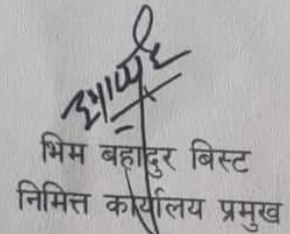 भिम बहादुर बिस्ट
निमित्त कार्यालय प्रमुख